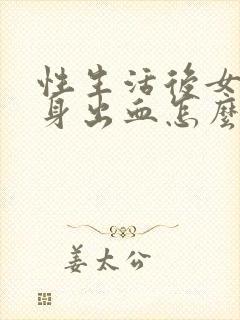 性生活後女
身出血怎麼
姜太公